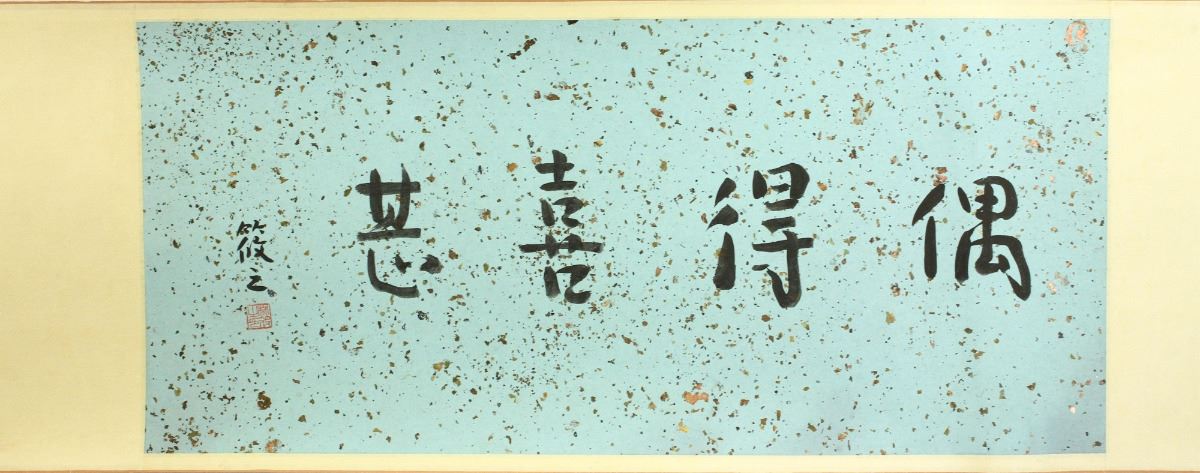 偶得喜甚
筱之